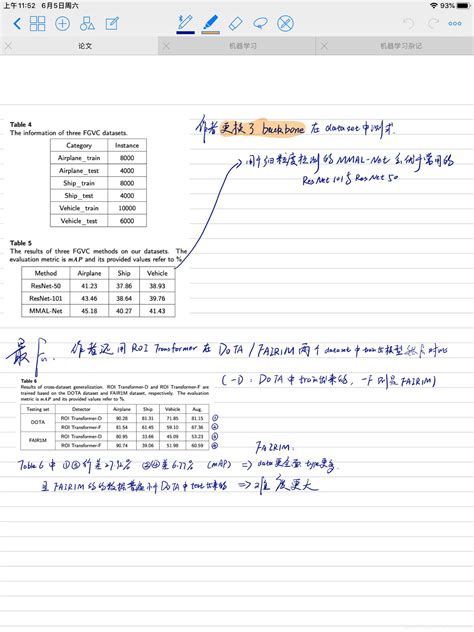 上午11:52 6月5日周六
93%
论文
机器学习
机器学习杂记
Table 4
The information of three FGVC datasets.
Category Instance
Airplane_train 8000
Airplane_test 4000
Ship_train 8000
Ship_test 4000
Vehicle_train 10000
Vehicle_test 6000
作者更换了 backbone 在 dataset 中测试.
用于细粒度检测的 MMAL-Net 不优于常用的
ResNet 101与 ResNet 50
Table 5
The results of three FGVC methods on our datasets. The
evaluation metric is mAP and its provided values refer to %.
Method Airplane Ship Vehicle
ResNet-50 41.23 37.86 38.93
ResNet-101 43.46 38.64 39.76
MMAL-Net 45.18 40.27 41.43
最后, 作者还用 ROI Transformer 在 DOTA / FAIR1M 两个 dataset 中 train 出模型
(-D: DOTA 中 train出来的, -F 则是 FAIR1M)
Table 6
Results of cross-dataset generalization. ROI Transformer-D and ROI Transformer-F are
trained based on the DOTA dataset and FAIR1M dataset, respectively. The evaluation
metric is mAP and its provided values refer to %.
Testing set Detector Airplane Ship Vehicle Aug.
DOTA ROI Transformer-D 90.28 81.31 71.85 81.15 ①
ROI Transformer-F 81.54 61.45 59.10 67.36 ②
FAIR1M ROI Transformer-D 80.95 33.66 45.09 53.23 ③
ROI Transformer-F 90.74 39.06 51.98 60.59 ④
FAIR1M:
Table 6 中 ①③ 差 27.92% ②④差6.77% (mAP) ⇒ data更全面 type更多.
且 FAIR1M 的数据普遍小于 DOTA 中 test出来的 ⇒ 难度更大